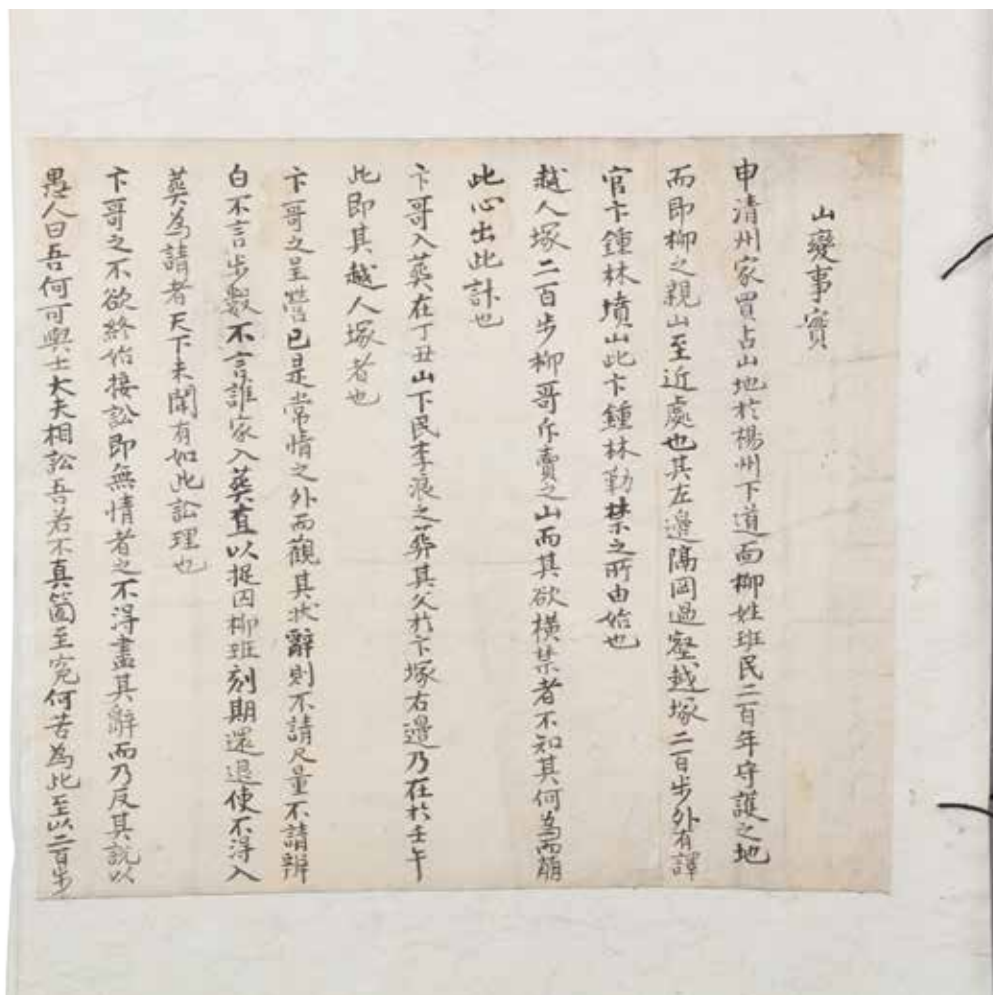 山變事實
申清州家買占山地於楊州下道面柳姓班民二百年守護之地
而即柳之親山至近處也其左邊隔岡過壑越塚二百步外有譯
官卞鍾林墳山此卞鍾林勒禁之所由始也
越人塚二百步柳哥斥賣之山而其欲橫禁者不知其何為而萠
此心出此計也
卞哥入葬在丁丑山下民李浪之葬其父於卞塚右邊乃在於壬午
此即其越人塚者也
卞哥之呈營已是常情之外而觀其狀辭則不請尺量不請辨
白不言步數不言誰家入葬直以捉囚柳班刻期還退使不得入
葬為請者天下未聞有如此訟理也
卞哥之不欲終始接訟即無情者之不得盡其辭而乃反其說以
愚人曰吾何可與士大夫相訟吾若不真箇至寃何苦為此至以二百步